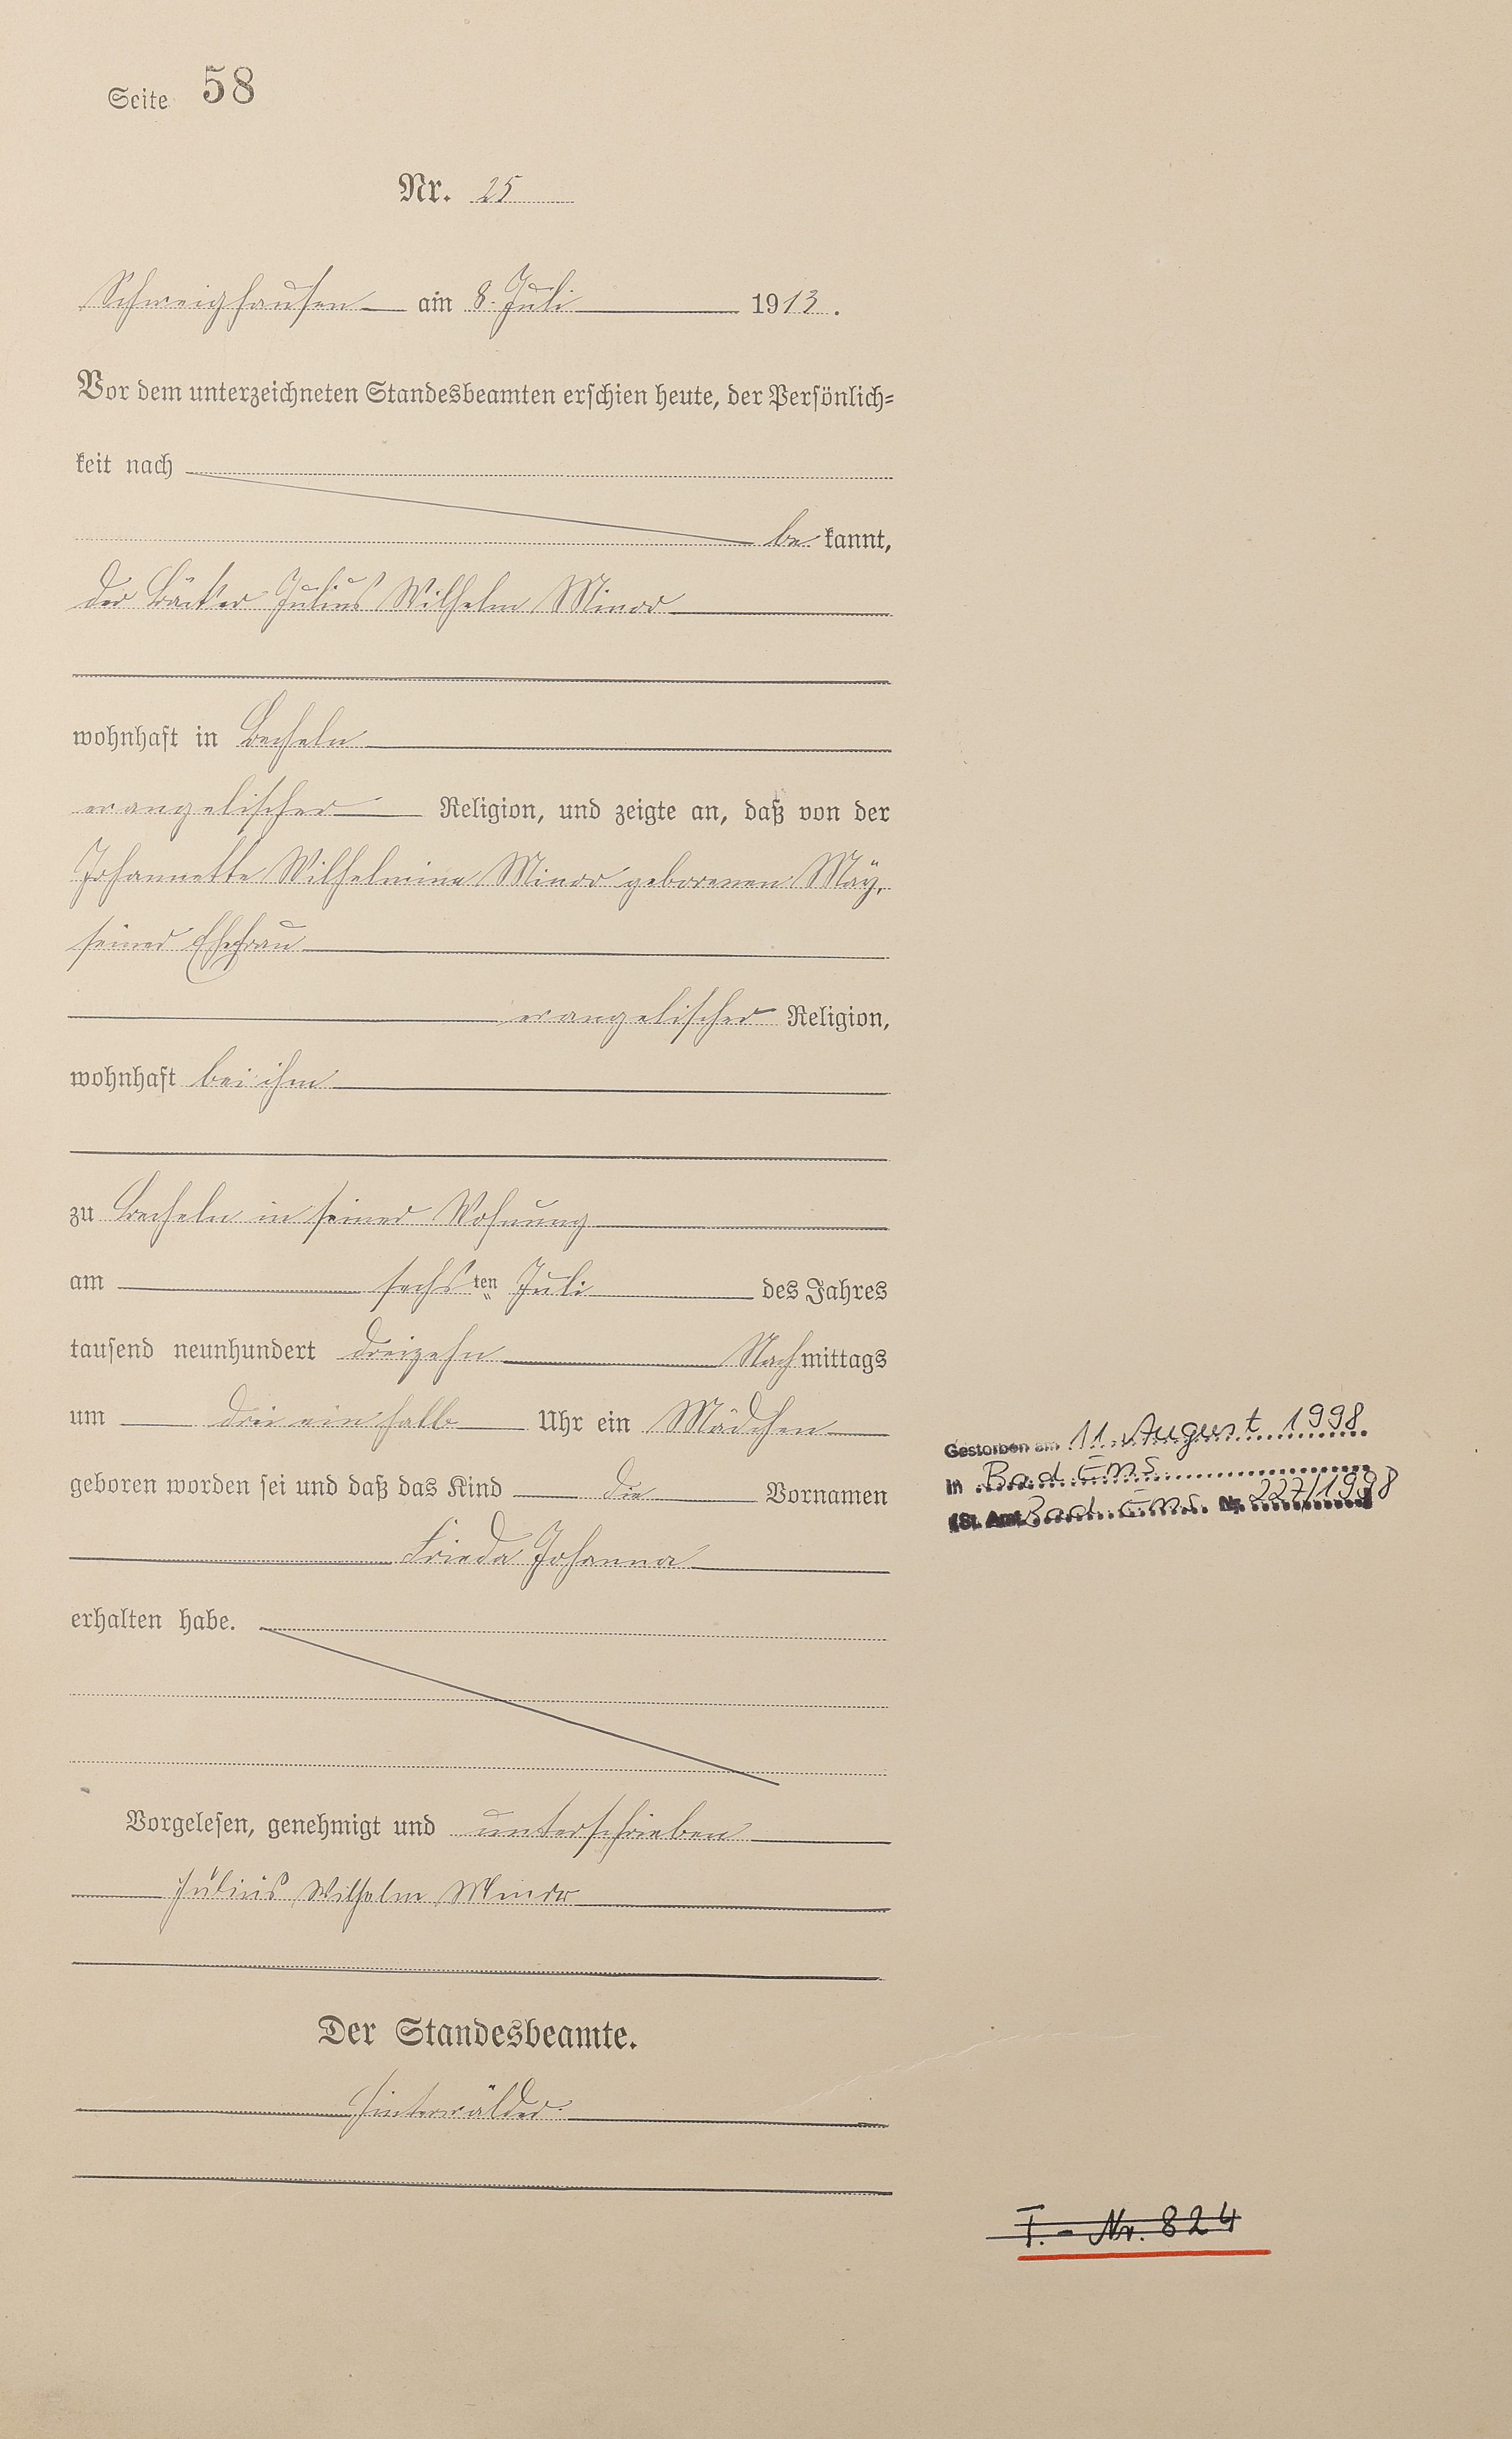 Seite 58
Nr. 25
Schweighausen am 8. Juli 1913.
Vor dem unterzeichneten Standesbeamten erschien heute, der Persönlich=
keit nach
be kannt,
der Bäcker Julius Wilhelm Minor
wohnhaft in Becheln
evangelischer Religion, und zeigte an, daß von der
Johannette Wilhelmine Minor geborenen Maÿ,
seiner Ehefrau
evangelischer Religion,
wohnhaft bei ihm
zu Becheln in seiner Wohnung
am sechsten Juli des Jahres
tausend neunhundert dreizehn Nachmittags
um drei einhalb Uhr ein Mädchen
geboren worden sei und daß das Kind die Vornamen
Frieda Johanna
erhalten habe.
Vorgelesen, genehmigt und unterschrieben
Julius Wilhelm Minor
Der Standesbeamte.
Hinterwälder
Gestorben am 11. August 1998
in Bad Ems
(St. Amt Bad Ems Nr. 227/1998
T. - Nr. 824